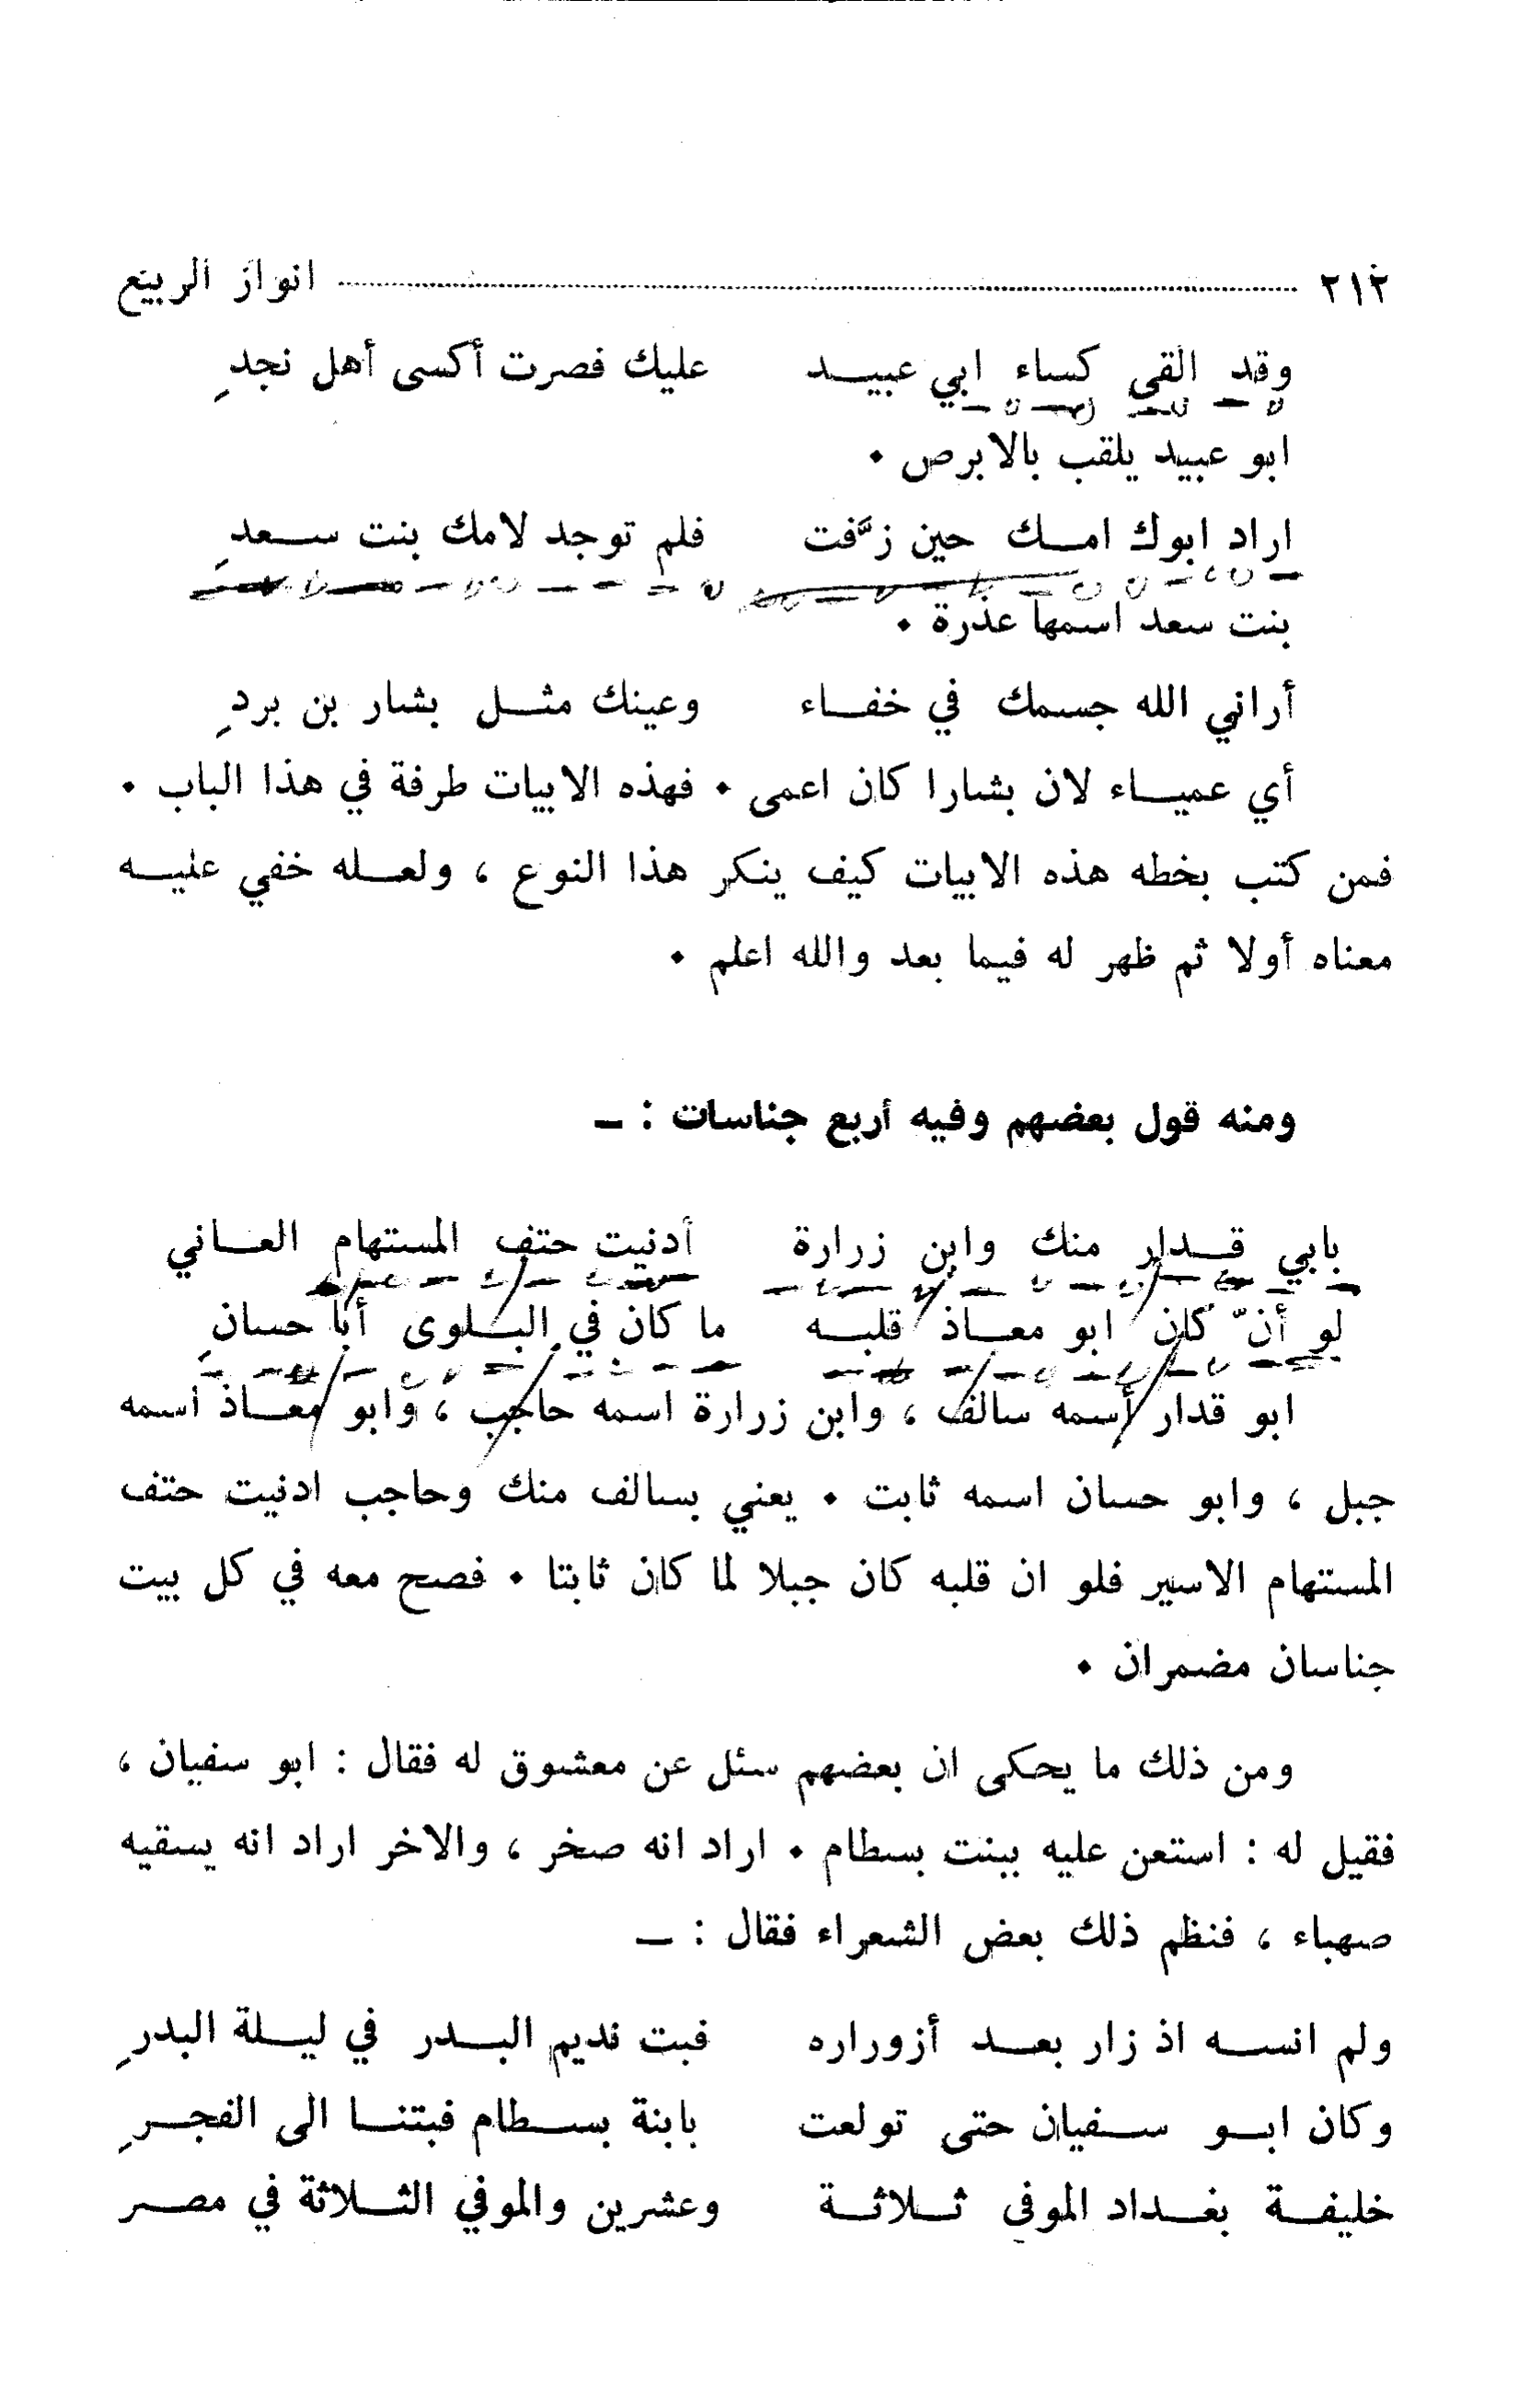 ٢١٢ انوار الربيع
وقد القى كساء ابي عبيـــد عليك فصرت أكسى أهل نجدِ
ابو عبيد يلقب بالابرص ٠
اراد ابوك امــك حين زفّت فلم توجد لامك بنت ســعدِ
بنت سعد اسمها عذرة ٠
أراني الله جسمك في خفــاء وعينك مثــل بشار بن بردِ
أي عميــاء لان بشارا كان اعمى ٠ فهذه الابيات طرفة في هذا الباب ٠
فمن كتب بخطه هذه الابيات كيف ينكر هذا النوع ، ولعــله خفي عليــه
معناه أولا ثم ظهر له فيما بعد والله اعلم ٠
ومنه قول بعضهم وفيه أربع جناسات : ـ
بابي قــدار منك وابن زرارة أدنيت حتف المستهام العــاني
لو أنّ كان ابو معــاذ قلبــه ما كان في البــلوى أبا حسانِ
ابو قدار أسمه سالف ، وابن زرارة اسمه حاجب ، وابو معــاذ اسمه
جبل ، وابو حسان اسمه ثابت ٠ يعني بسالف منك وحاجب ادنيت حتف
المستهام الاسير فلو ان قلبه كان جبلا لما كان ثابتا ٠ فصح معه في كل بيت
جناسان مضمران ٠
ومن ذلك ما يحكى ان بعضهم سئل عن معشوق له فقال : ابو سفيان ،
فقيل له : استعن عليه ببنت بسطام ٠ اراد انه صخر ، والاخر اراد انه يسقيه
صهباء ، فنظم ذلك بعض الشعراء فقال : ـ
ولم انســه اذ زار بعــد أزوراره فبت نديم البــدر في ليــلة البدرِ
وكان ابــو ســفيان حتى تولعت بابنة بســطام فبتنــا الى الفجــرِ
خليفــة بغــداد الموفى ثــلاثــة وعشرين والموفي الثــلاثة في مصــر